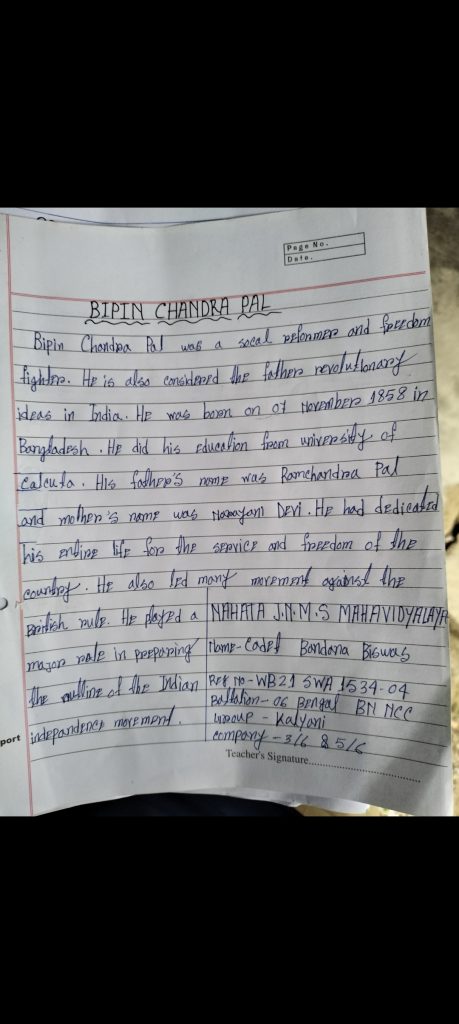 Page No.
Date.
BIPIN CHANDRA PAL
Bipin Chandra Pal was a socal reformer and freedom
fighter. He is also considered the father revolutionary
ideas in India. He was born on 07 November 1858 in
Bangladesh. He did his education from university of
Calcuta. His father's name was Ramchandra Pal
and mother's name was Narayani Devi. He had dedicated
his entire life for the service and freedom of the
country. He also led many movement against the
British rule. He played a
major role in preparing
the outline of the Indian
independence movement.
NAHATA J.N.M.S MAHAVIDYALAYA
Name- Cadet Bandana Biswas
REF NO- WB21 SWA 1534-04
Battalion- 06 Bengal BN NCC
Group - Kalyani
Company - 3/6 & 5/6
port
Teacher's Signature